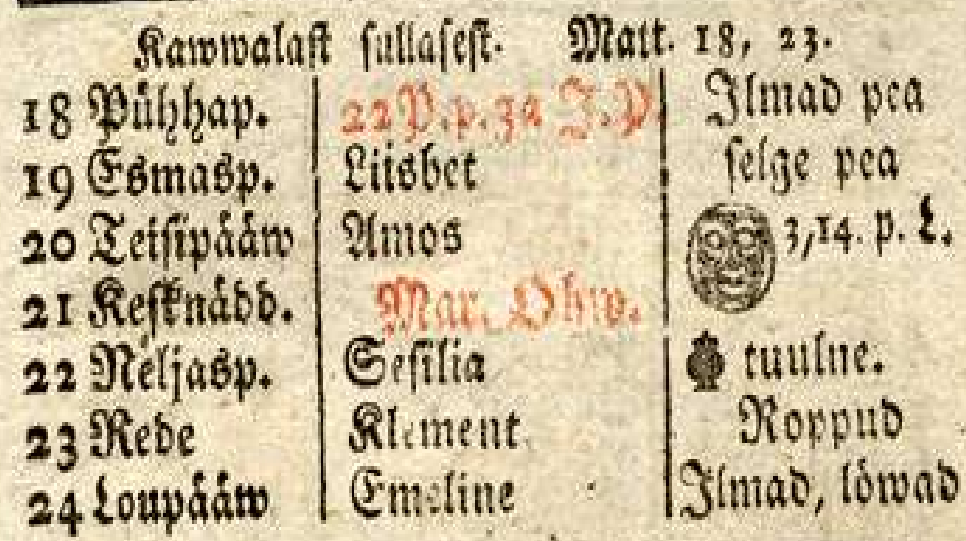 Kawwalast sullasest. Matt. 18, 23.
18 Pühhap. 22 P. p. 3a J. P. Ilmad pea
19 Esmasp. Liisbet selge pea
20 Teisipääw Amos 3,14. p. L.
21 Kesknädd. Mar. Ohw.
22 Neljasp. Sesilia tuulne.
23 Rede Klement Roppud
24 Loupääw Emeline Ilmad, löwad